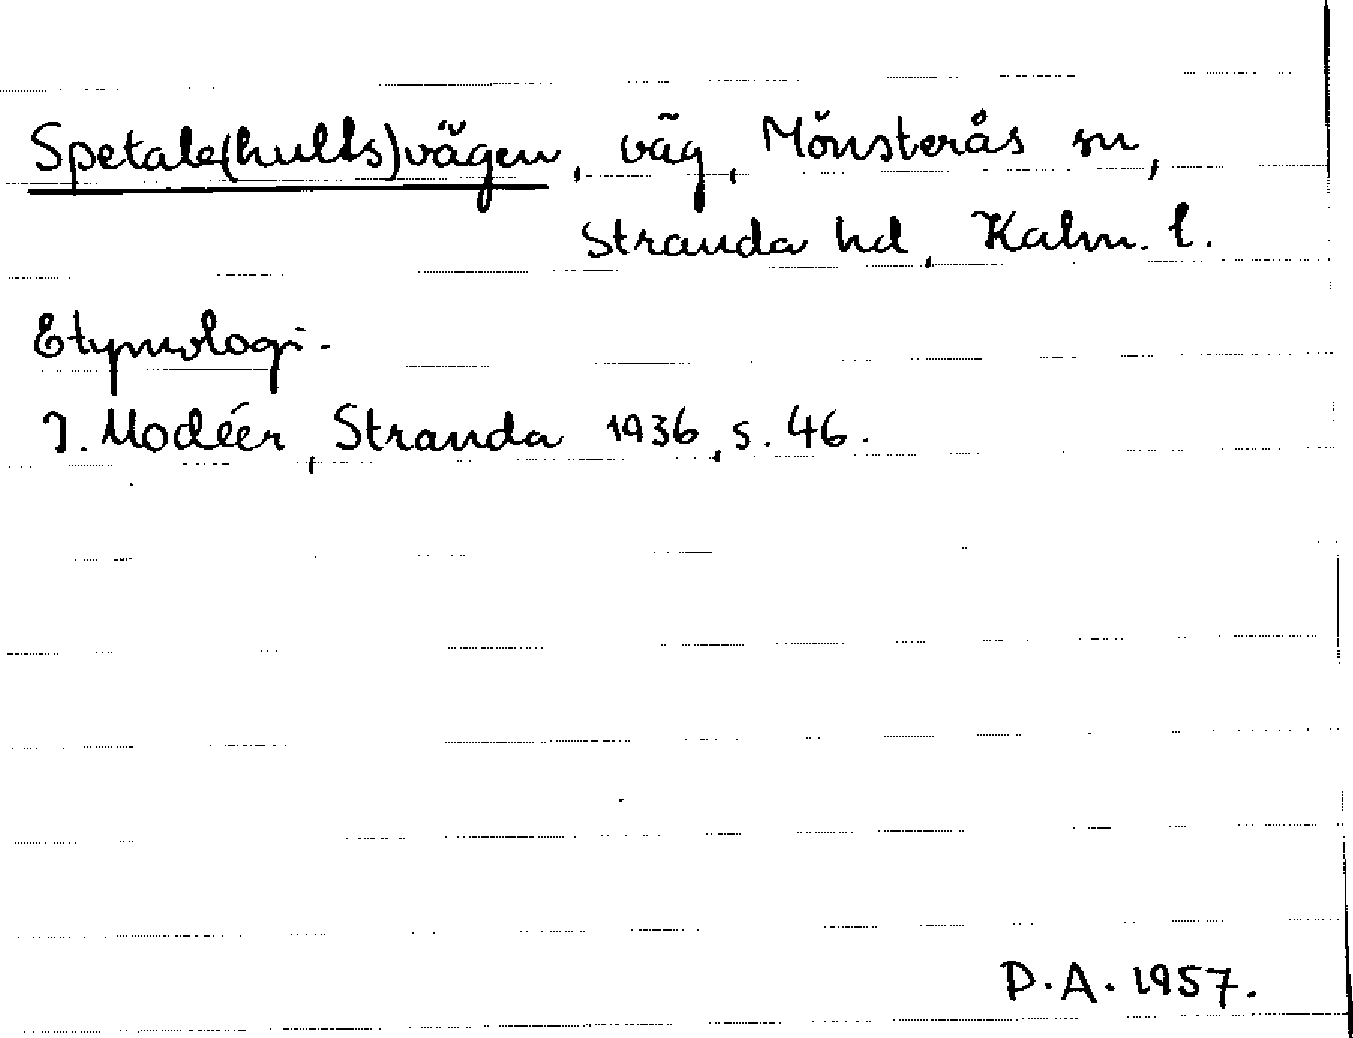 Spetale(hults)vägen, väg, Mönsterås sn,
Stranda hd, Kalm. l.
Etymologi.
I. Modéer, Stranda 1936, s. 46.
D.A. 1957.